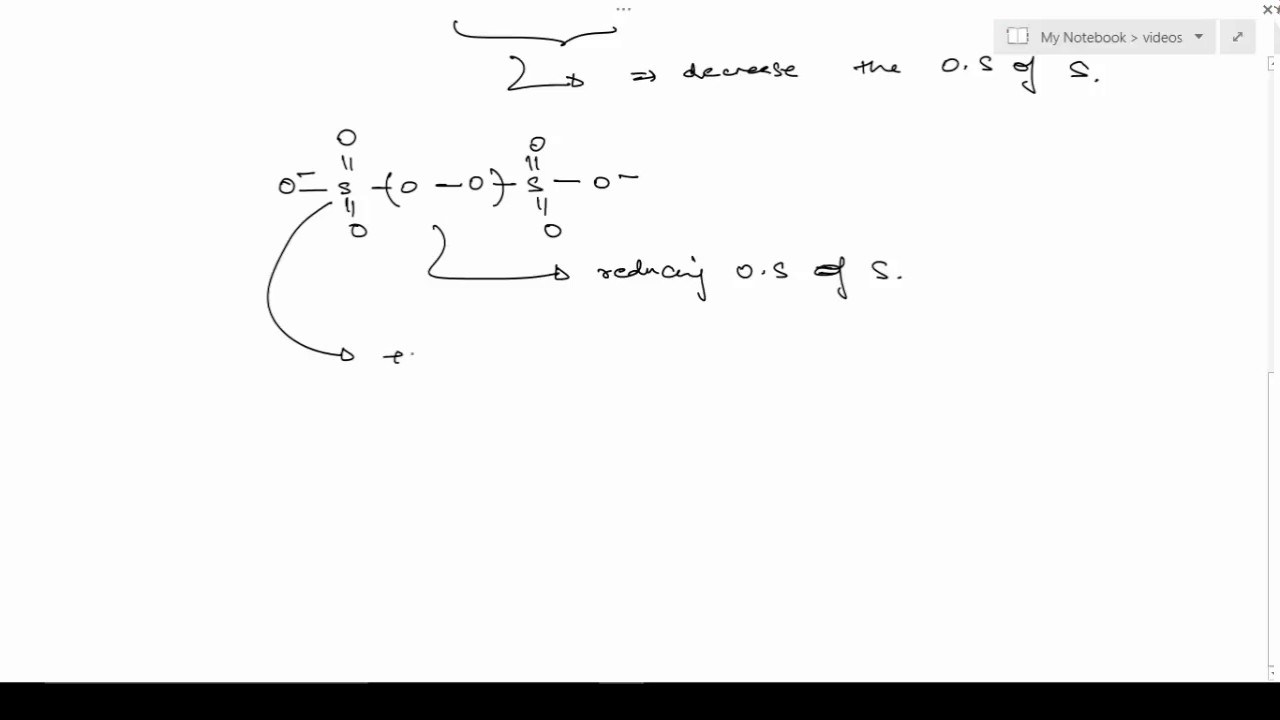 My Notebook > videos
⇒ decrease the O.S of S.
O O
O⁻ — S —(O — O)— S — O⁻
O O
reducing O.S of S.
+